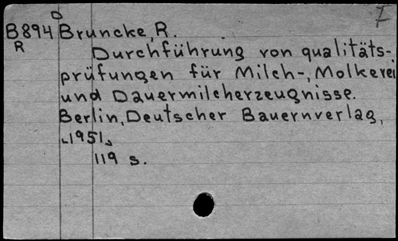 B894 Bruncke, R.
R
Durchführung von qualitäts-
prüfungen für Milch-, Molkerei
und Dauermilcherzeugnisse.
Berlin, Deutscher Bauernverlag,
[1951]
119 s.